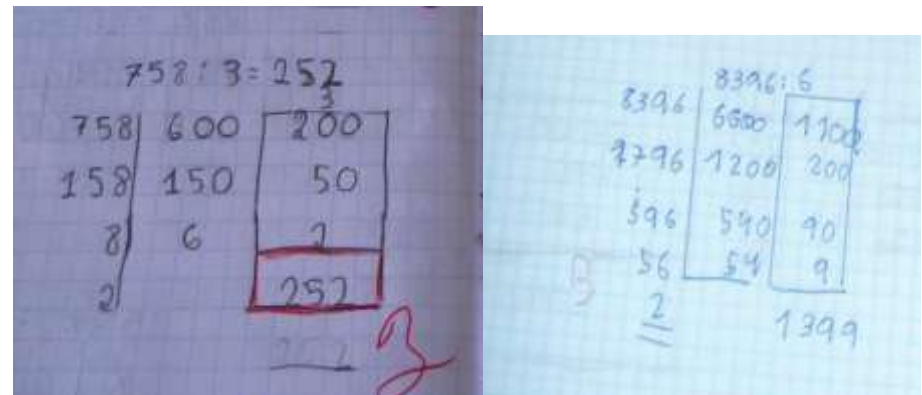 758 : 3 = 252
3
758 600 200
158 150 50
8 6 2
2 252
8396 : 6
8396 6600 1100
1796 1200 200
596 540 90
56 54 9
2 1399